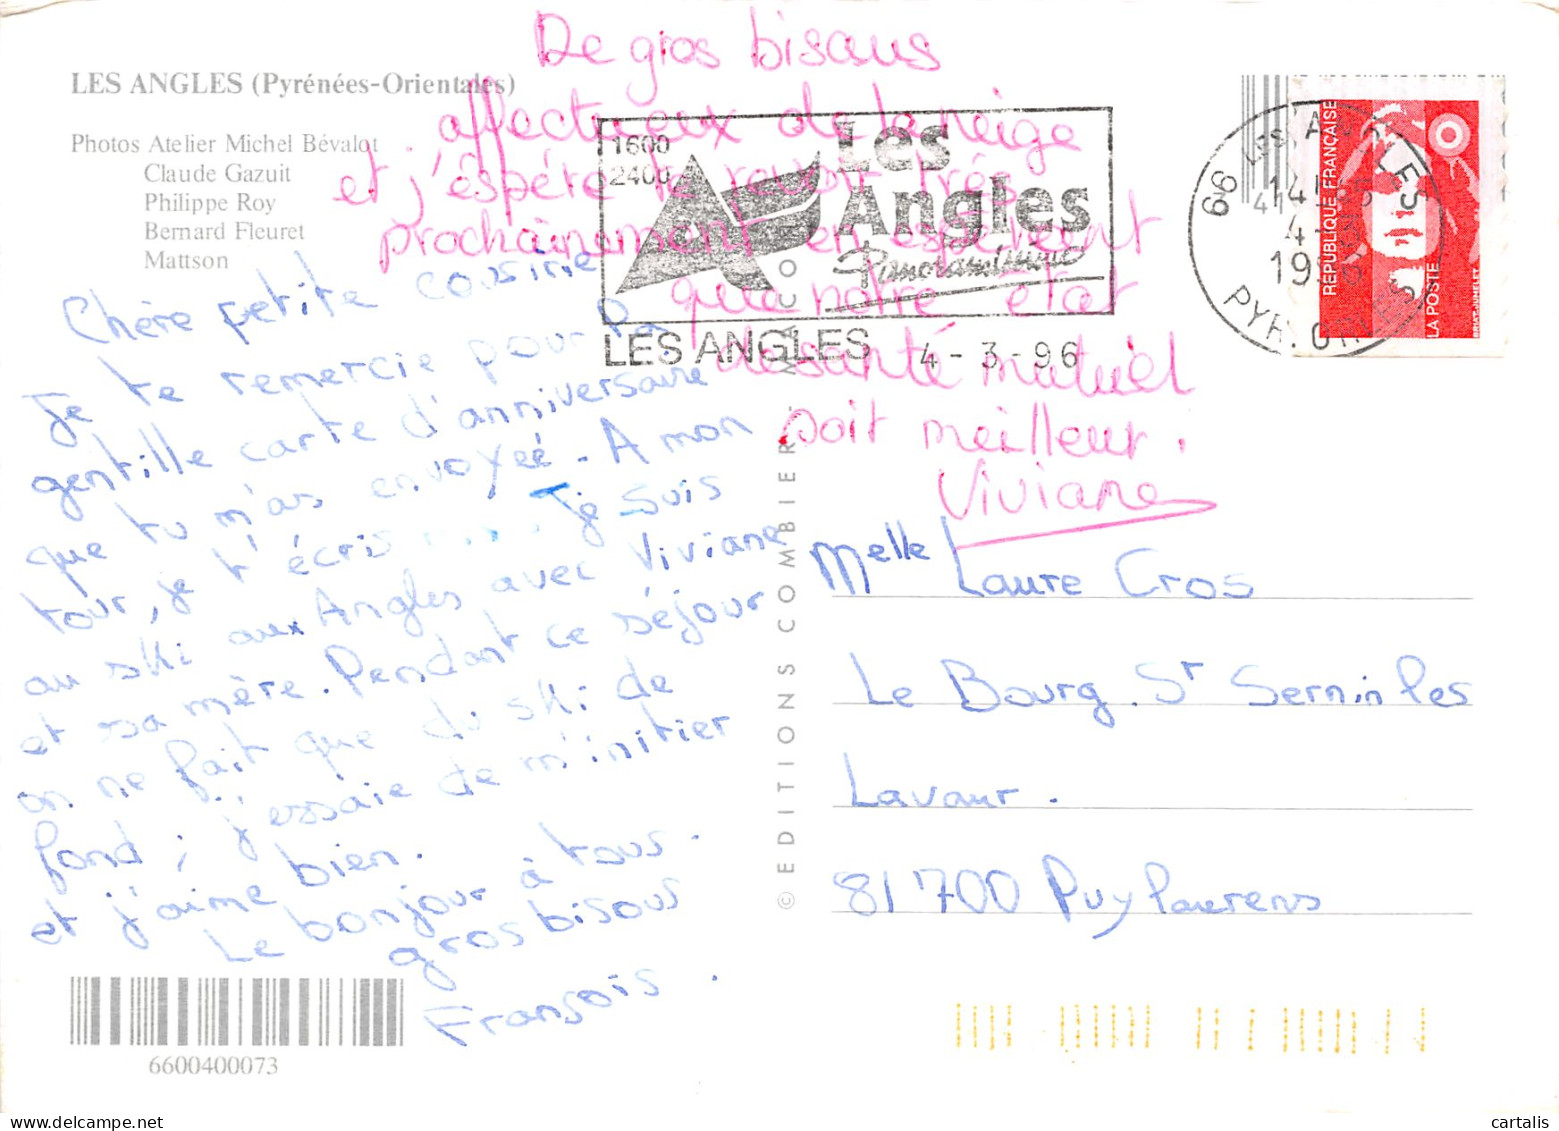 LES ANGLES (Pyrénées-Orientales)
Photos Atelier Michel Bévalot
Claude Gazuit
Philippe Roy
Bernard Fleuret
Mattson
De gros bisous
affectueux de la neige
et j'éspére te revoir très
prochainement en espèrent
que notre état
de santé mutuel
soit meilleur.
Viviane
1600
2400
Les
Angles
Panoramique
LES ANGLES 4-3-96
66 LES ANGLES
14H
4-3
1996
PYR. ORIENT
REPUBLIQUE FRANÇAISE
LA POSTE
Chère petite cousine
Je te remercie pour la
gentille carte d'anniversaire
que tu m'as envoyée. A mon
tour, je t'écris .... Je suis
au ski aux Angles avec Viviane
et sa mère. Pendant ce séjour
on ne fait que du ski de
fond ; j'essaie de m'initier
et j'aime bien.
Le bonjour à tous.
gros bisous
François.
© EDITIONS COMBIER MACON
Melle Laure Cros
Le Bourg. St Sernin les
Lavaur.
81700 Puylaurens
6600400073
cartalis